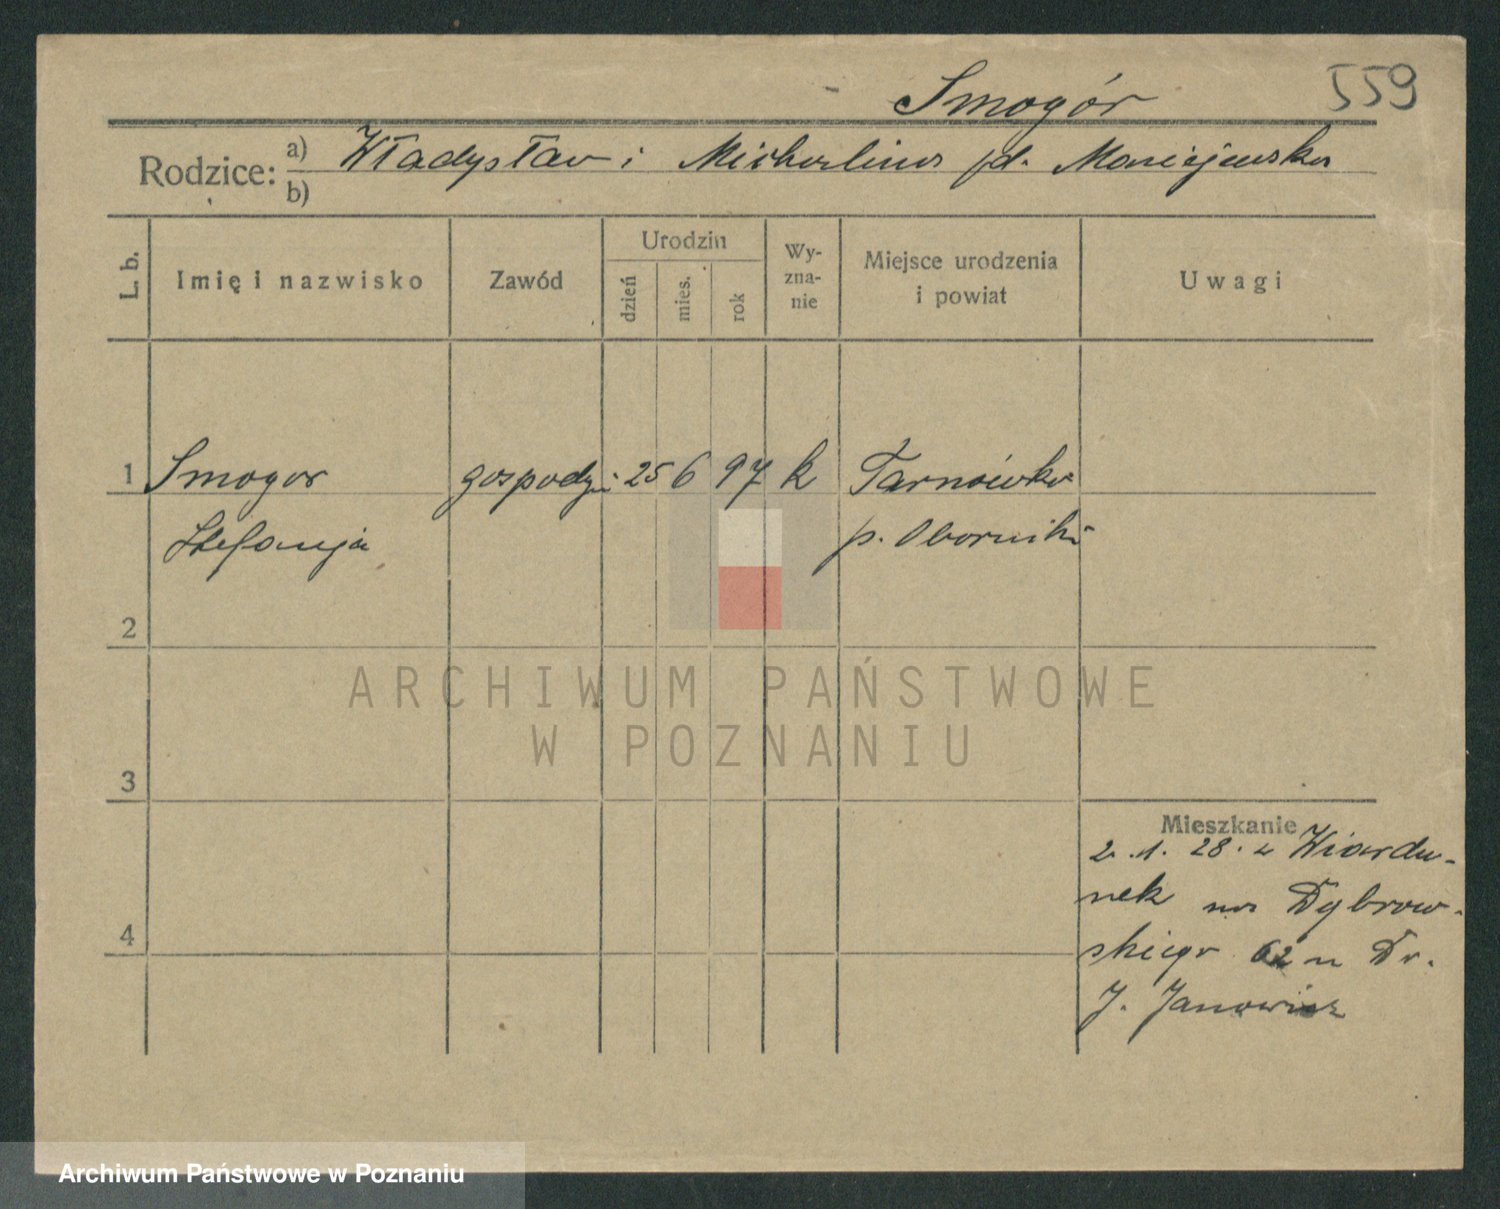 Smogór
559
Rodzice: a) Władysław i Michalina zd. Maciejewska
b)
L. b.
Imię i nazwisko
Zawód
Urodzin
dzień
mies.
rok
Wy-
zna-
nie
Miejsce urodzenia
i powiat
Uwagi
1 Smogor gospodyni 25 6 97 k Tarnówko
Stefanja p. Oborniki
2
ARCHIWUM PAŃSTWOWE
W POZNANIU
3
Mieszkanie
2.1.28. z Wiardu-
nek na Dąbrow-
skiego 62 u Dr.
4
J. Janowicz
Archiwum Państwowe w Poznaniu